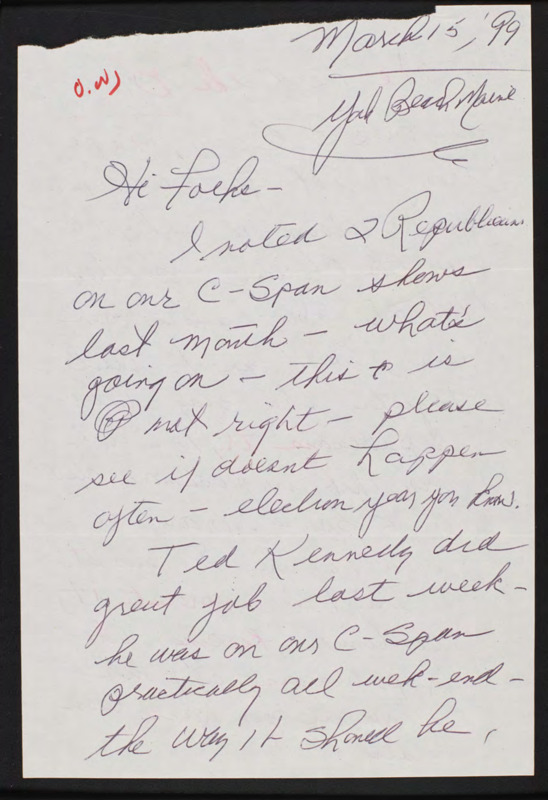 March 15, '99
O.W)
York Beach Maine
Hi Folks -
I noted 2 Republicans
on our C-Span shows
last month - what's
going on - this is
not right - please
see if doesnt happen
often - election year you know.
Ted Kennedy did
great job last week -
he was on our C-Span
practically all wek-end -
the way it should be,